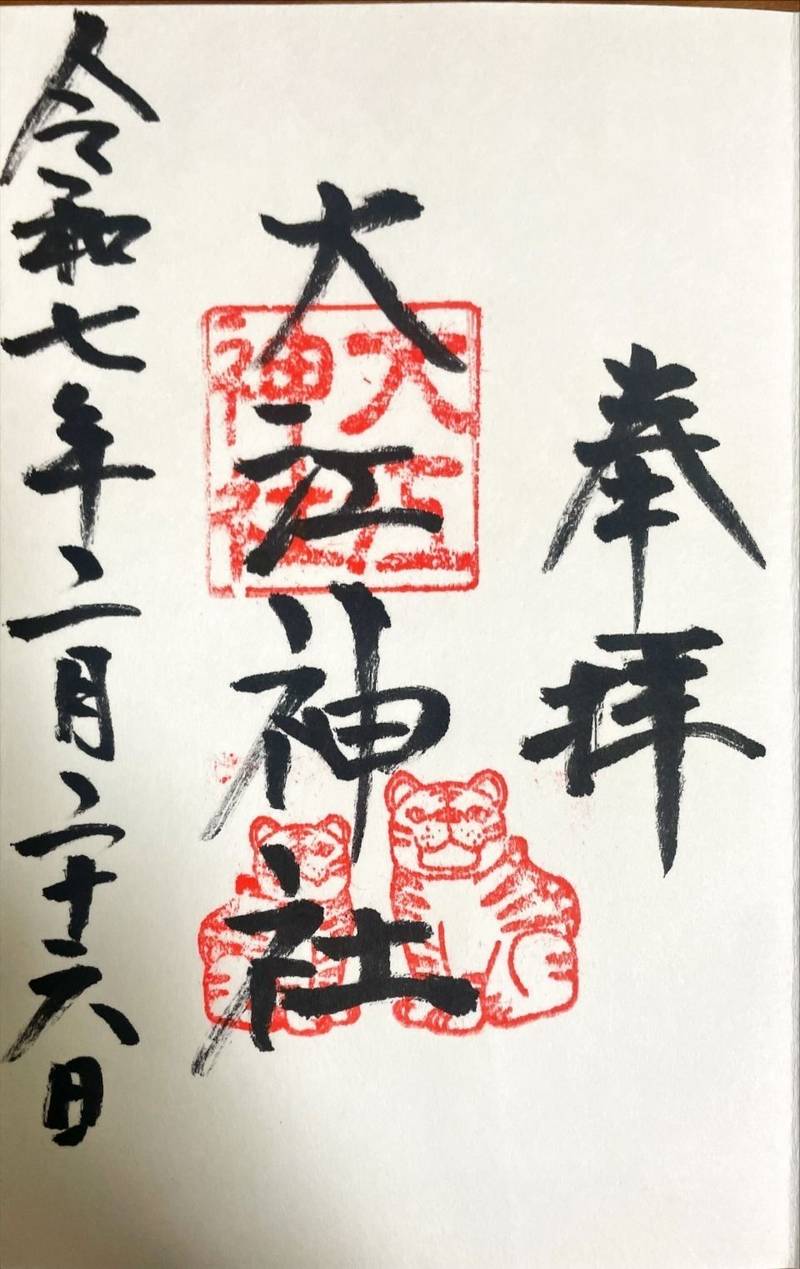 奉拝
大江神社
大江
神社
令和七年二月二十六日